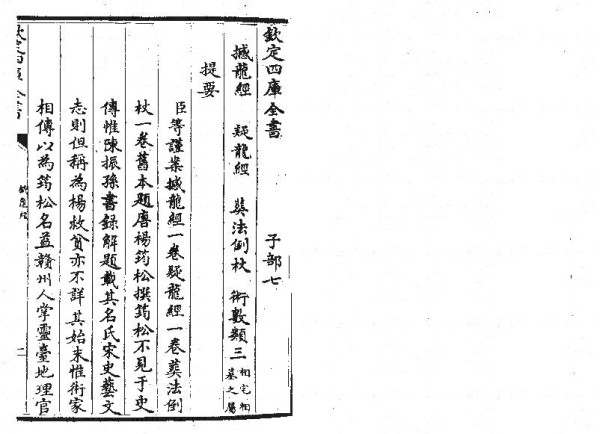 欽定四庫全書　子部七
撼龍經　疑龍經　葬法倒杖　術數類三 相宅相墓之屬
提要
臣等謹案撼龍經一卷疑龍經一卷葬法倒
杖一卷舊本題唐楊筠松撰筠松不見于史
傳惟陳振孫書録解題載其名氏宋史藝文
志則但稱為楊救貧亦不詳其始末惟術家
相傳以為筠松名益贛州人掌靈臺地理官
欽定四庫全書